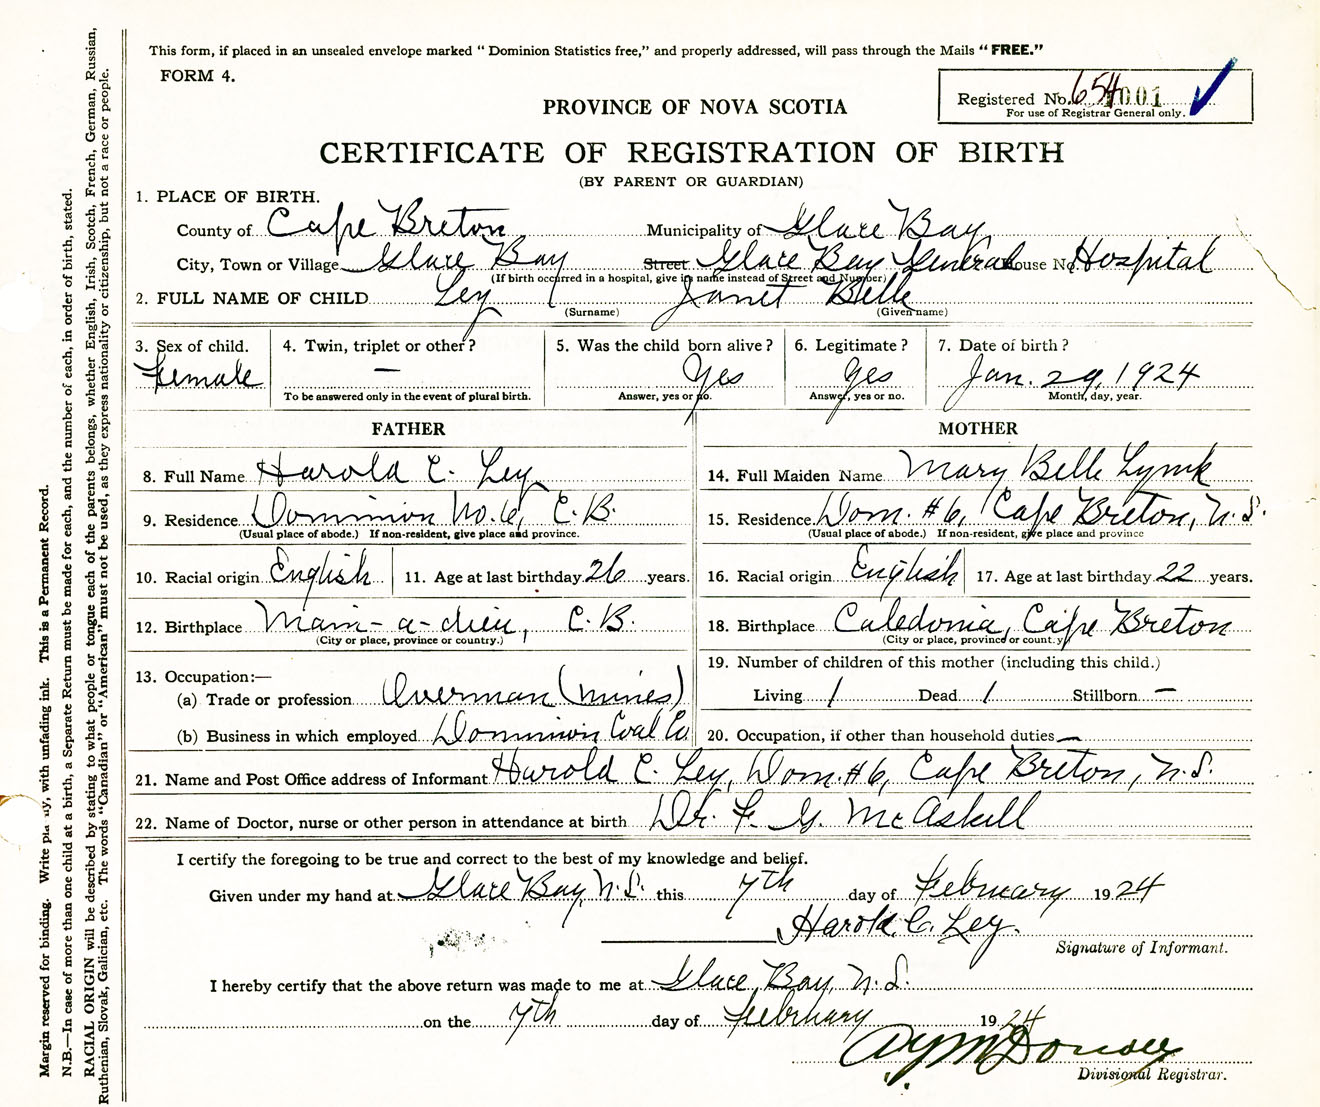 This form, if placed in an unsealed envelope marked "Dominion Statistics free," and properly addressed, will pass through the Mails "FREE."
FORM 4.
Registered No. 654001
For use of Registrar General only.
PROVINCE OF NOVA SCOTIA
CERTIFICATE OF REGISTRATION OF BIRTH
(BY PARENT OR GUARDIAN)
1. PLACE OF BIRTH.
County of Cape Breton Municipality of Glace Bay
City, Town or Village Glace Bay Street Glace Bay General House No. Hospital
(If birth occurred in a hospital, give its name instead of Street and Number)
2. FULL NAME OF CHILD Ley Janet Belle
(Surname) (Given name)
3. Sex of child. 4. Twin, triplet or other? 5. Was the child born alive? 6. Legitimate? 7. Date of birth?
Female — Yes Yes Jan. 29, 1924
To be answered only in the event of plural birth. Answer, yes or no. Answer, yes or no. Month, day, year.
FATHER MOTHER
8. Full Name Harold C. Ley 14. Full Maiden Name Mary Belle Lynk
9. Residence Dominion No. 6, C.B. 15. Residence Dom. #6, Cape Breton, N.S.
(Usual place of abode.) If non-resident, give place and province. (Usual place of abode.) If non-resident, give place and province
10. Racial origin English 11. Age at last birthday 26 years. 16. Racial origin English 17. Age at last birthday 22 years.
12. Birthplace Main-a-dieu, C.B. 18. Birthplace Caledonia, Cape Breton
(City or place, province or country.) (City or place, province or country)
13. Occupation:— 19. Number of children of this mother (including this child.)
(a) Trade or profession Overman (mines) Living 1 Dead 1 Stillborn —
(b) Business in which employed Dominion Coal Co 20. Occupation, if other than household duties —
21. Name and Post Office address of Informant Harold C. Ley, Dom. #6, Cape Breton, N.S.
22. Name of Doctor, nurse or other person in attendance at birth Dr. F. G. McAskill
I certify the foregoing to be true and correct to the best of my knowledge and belief.
Given under my hand at Glace Bay, N.S. this 7th day of February 1924
Harold C. Ley.
Signature of Informant.
I hereby certify that the above return was made to me at Glace Bay, N.S.
on the 7th day of February 1924
Divisional Registrar.
Margin reserved for binding. Write plainly, with unfading ink. This is a Permanent Record.
N.B.—In case of more than one child at a birth, a Separate Return must be made for each, and the number of each, in order of birth, stated.
RACIAL ORIGIN will be described by stating to what people or tongue each of the parents belongs, whether English, Irish, Scotch, French, German, Russian,
Ruthenian, Slovak, Galician, etc. The words "Canadian" or "American" must not be used, as they express nationality or citizenship, but not a race or people.